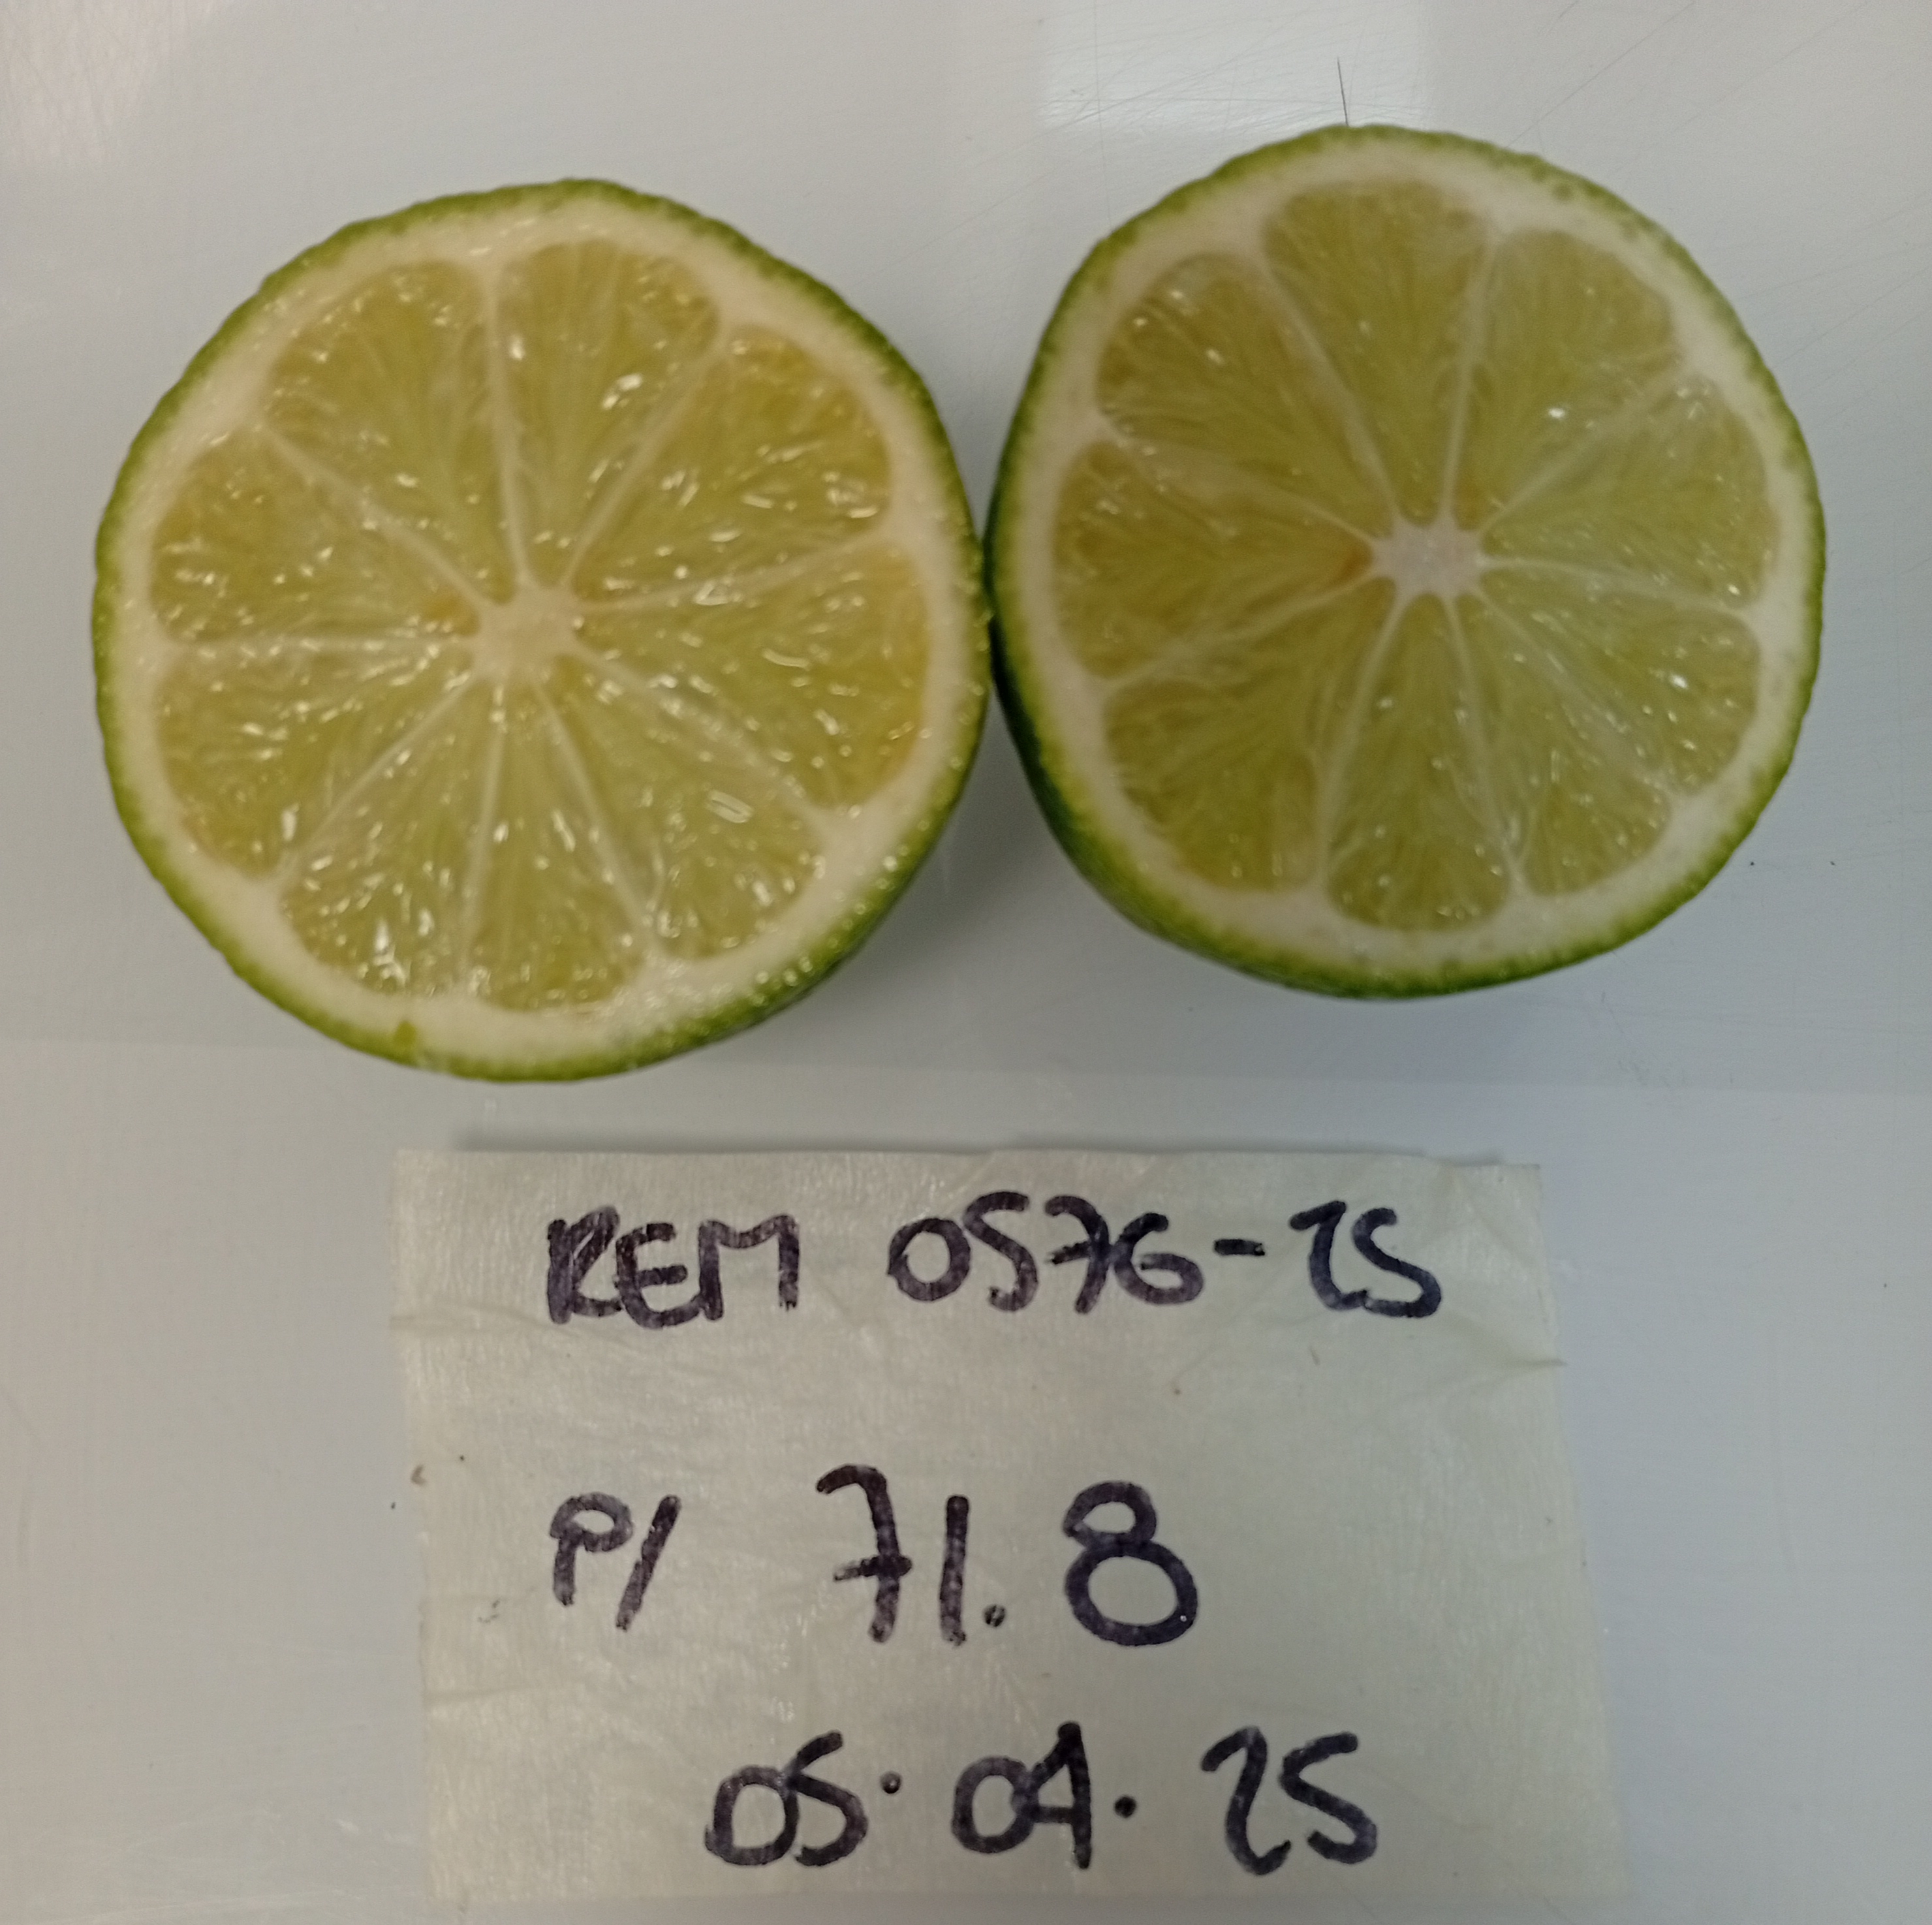 REM 0576-25
P/ 71.8
05.04.25